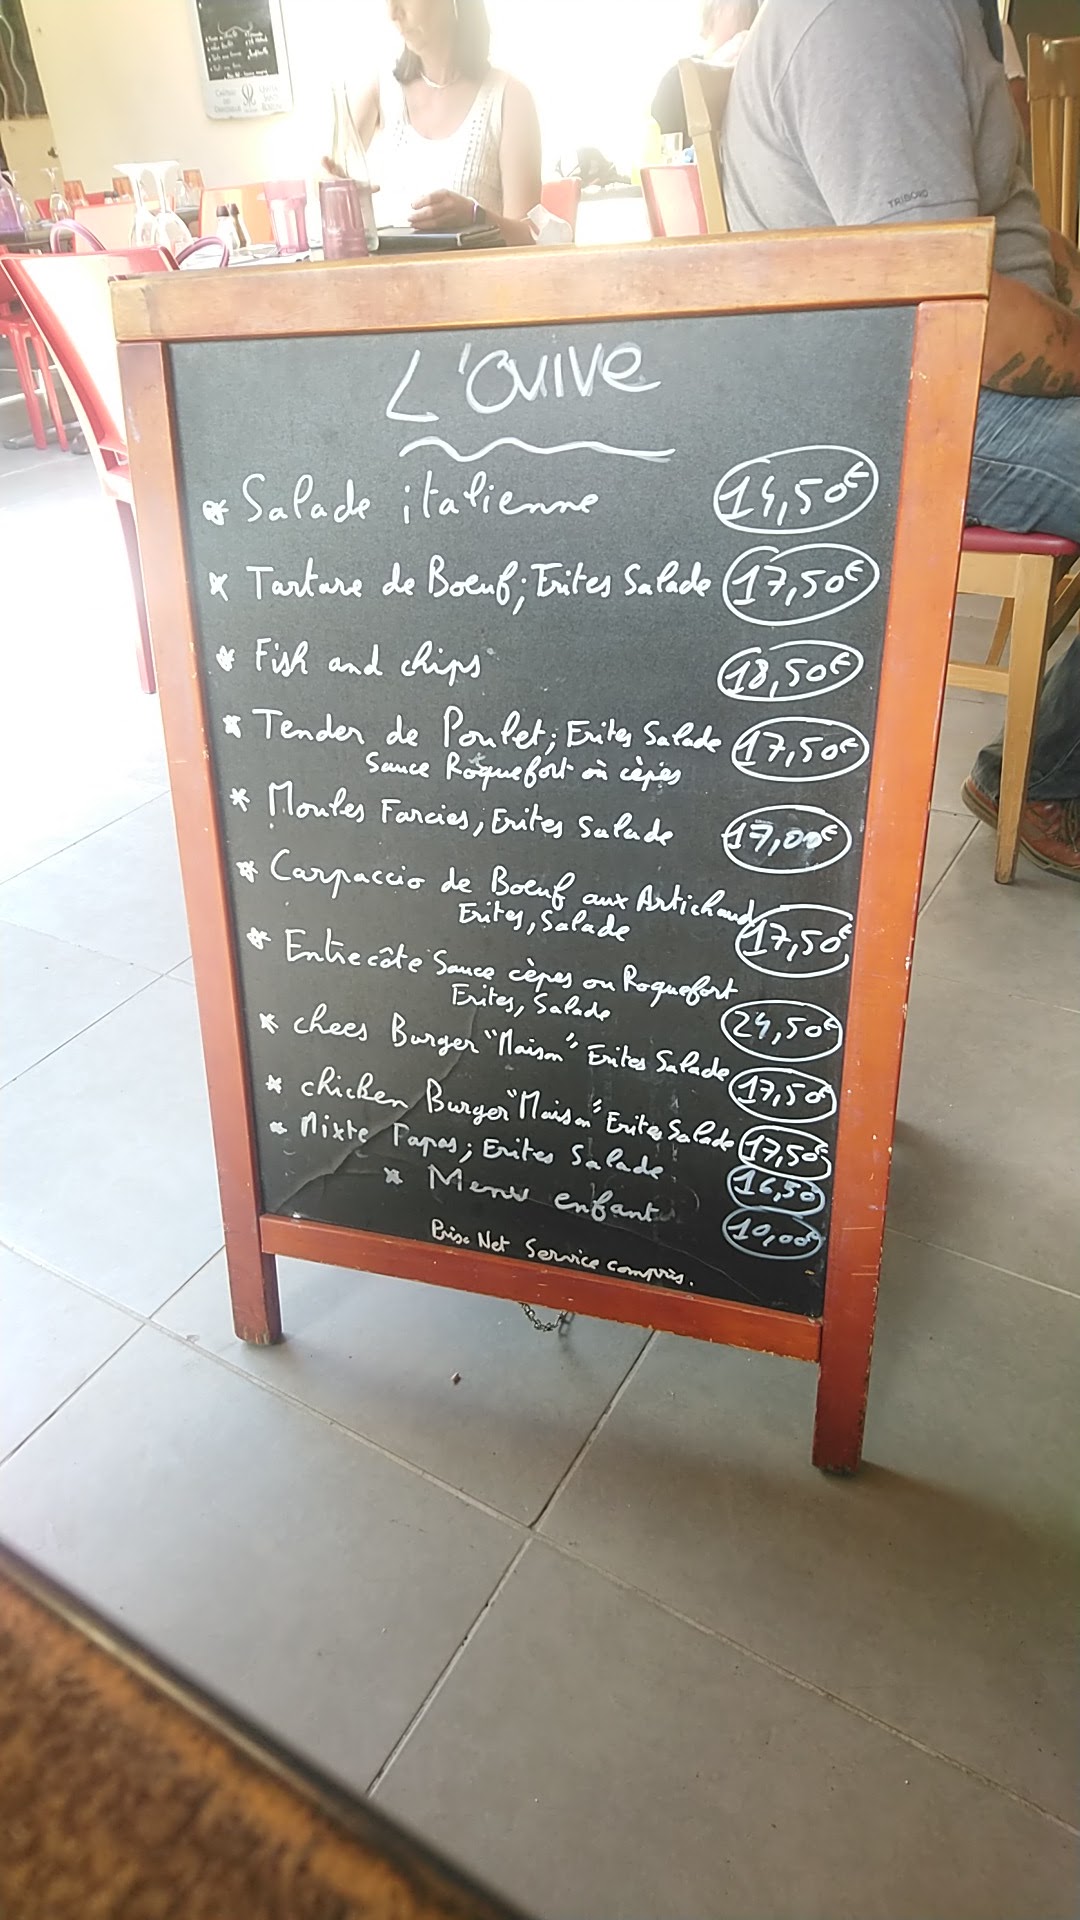 L'OUIVE
* Salade italienne 14,50€
* Tartare de Boeuf; Frites Salade 17,50€
* Fish and chips 18,50€
* Tender de Poulet; Frites Salade 17,50€
Sauce Roquefort où cèpes
* Moules Farcies, Frites Salade 17,00€
* Carpaccio de Boeuf aux Artichauds
Frites, Salade 17,50€
* Entrecôte Sauce cèpes ou Roquefort
Frites, Salade 24,50€
* chees Burger "Maison" Frites Salade 17,50€
* chicken Burger "Maison" Frites Salade 17,50€
* Mixte Tapas; Frites Salade 16,50
* Menu enfant 10,00€
Prix Net Service compris.
TRIBORD